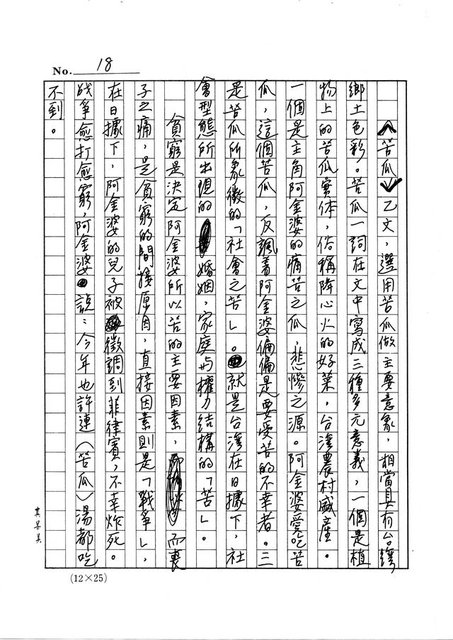 No. 18
《苦瓜》乙文,選用苦瓜做主要意象,相當具有台灣
鄉土色彩。苦瓜一詞在文中寫成三種多元意義,一個是植
物上的苦瓜實体,俗稱降心火的好菜,台灣農村盛產。
一個是主角阿金婆的痛苦之瓜,悲慘之源。阿金婆愛吃苦
瓜,這個苦瓜,反諷着阿金婆偏偏是要受苦的不幸者。三
是苦瓜所象徵的「社會之苦」。就是台灣在日據下,社
會型態所出現的婚姻,家庭与權力結構的「苦」。
貧窮是決定阿金婆所以苦的主要因素,而喪
子之痛,是貧窮的間接原因,直接因素則是「戰爭」,
在日據下,阿金婆的兒子被徵調到菲律賓,不幸炸死。
战争愈打愈窮,阿金婆說:今年也許連(苦瓜)湯都吃
不到。
(12×25)